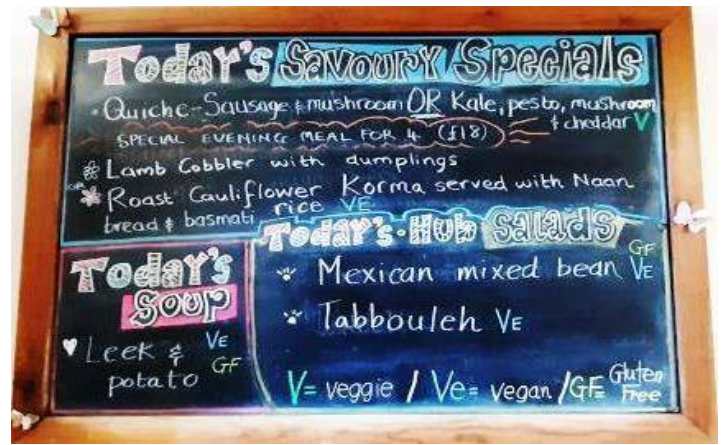 Today's Savoury Specials
Quiche - Sausage & mushroom OR Kale, pesto, mushroom
& cheddar V
SPECIAL EVENING MEAL FOR 4 (£18)
Lamb Cobbler with dumplings
OR
Roast Cauliflower Korma served with Naan
bread & basmati rice VE
Today's Soup
Leek & VE
potato GF
Today's · Hub Salads
Mexican mixed bean GF VE
Tabbouleh VE
V = veggie / Ve = vegan / GF = Gluten Free